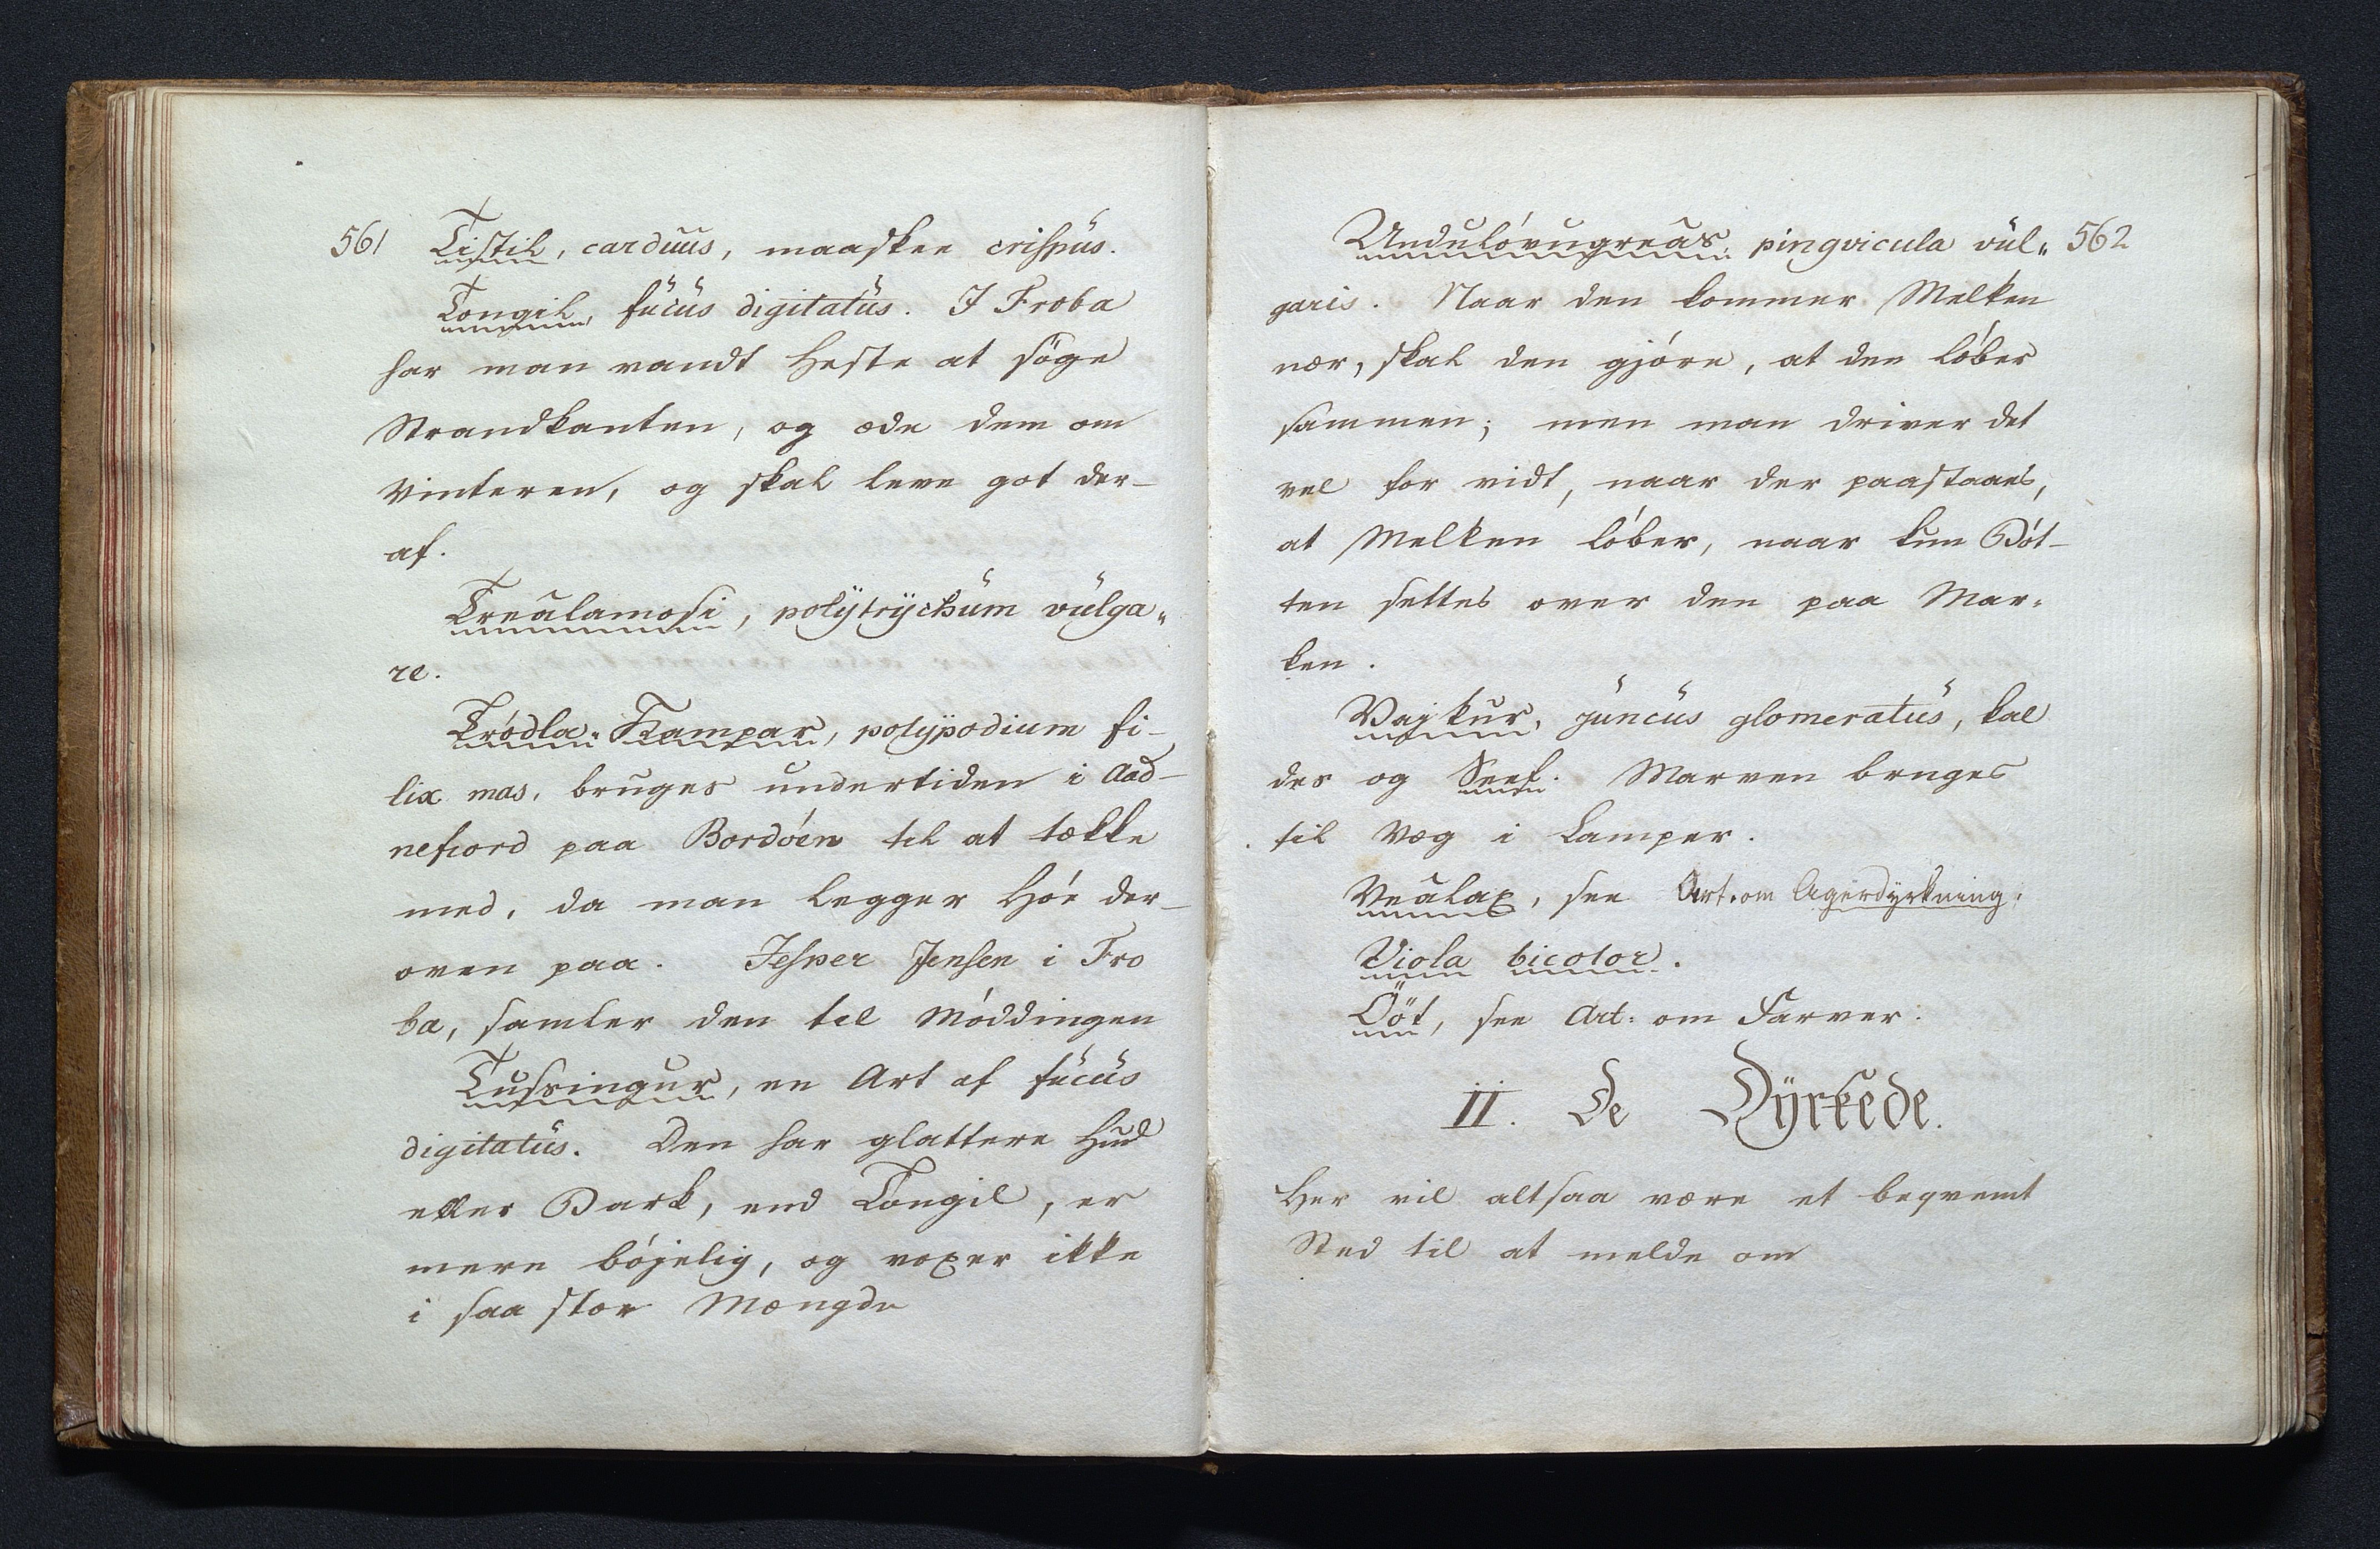 561 Tistil, carduus, maaskee crispus.
Tongil, fucus digitatus. I Froba
har man vandt Heste at søge
Strandkanten, og æde dem om
Vinteren, og skal leve got der-
af.
Trealamosi, polÿtrÿchum vulga„
re.
Tródla„Kampar, polÿpodium fi-
lix mas, bruges undertiden i Aad-
nefiord paa Bordóen til at tække
med, da man legger Hóe der-
oven paa. Jesper Jensen i Fro
ba, samler den til Móddingen
Tussingur, en Art af fucus
digitatus. Den har glattere Hud
eller Bark, end Tongil, er
mere bójelig, og voxer ikke
i saa stor Mængde
Undulóvugreâs, pingvicula vul„ 562
garis. Naar den kommer Melken
nær, skal den gjóre, at den lóber
sammen; men man driver det
vel for vidt, naar der paastaaes,
at Melken lóber, naar kun Bót-
ten settes over den paa Mar-
ken.
Vajkur, juncus glomeratus, kal
des og Seef. Marven bruges
til Væg i Lamper.
Veâlax, see Art. om Agerdyrkning.
Viola bicolor.
Ööt, see Art: om Farver.
II. De Dÿrkede.
Her vil altsaa være et beqvemt
Sted til at melde om